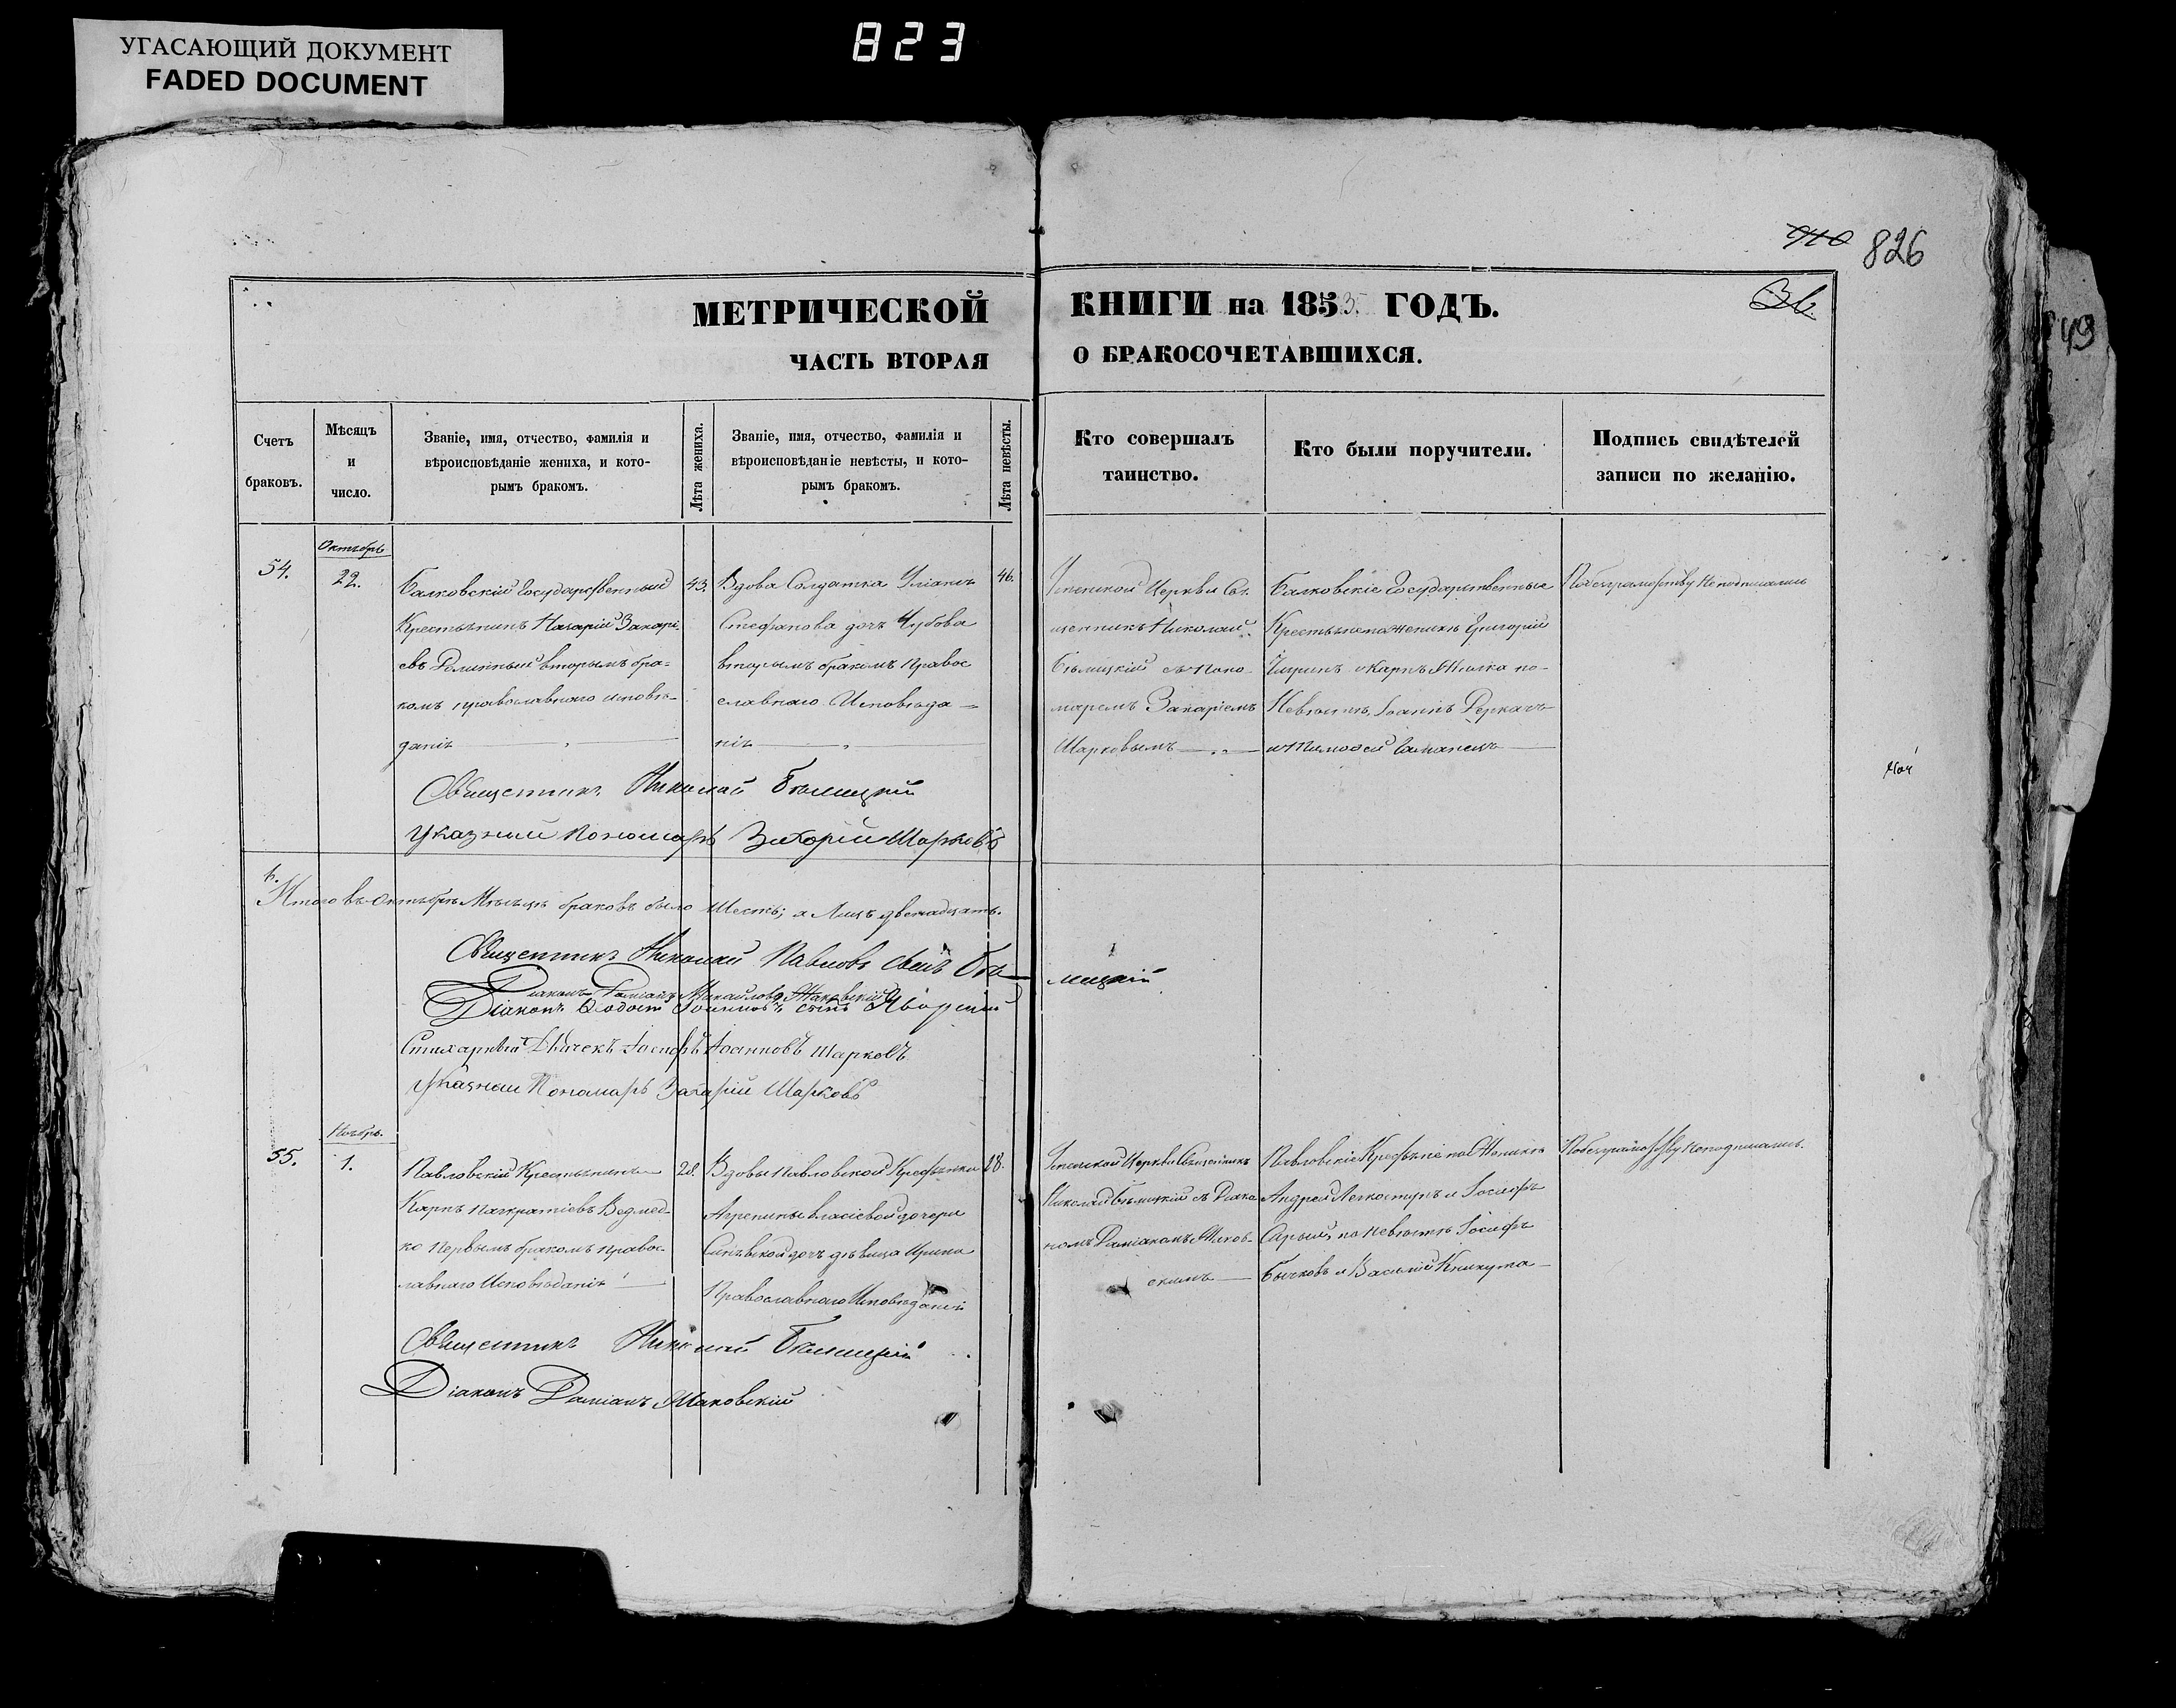 УГАСАЮЩИЙ ДОКУМЕНТ
FADED DOCUMENT
823
910 826
МЕТРИЧЕСКОЙ КНИГИ на 1853. ГОДЪ.
36.
49
ЧАСТЬ ВТОРАЯ О БРАКОСОЧЕТАВШИХСЯ.
Счетъ браковъ.
Мѣсяцъ и число.
Званіе, имя, отчество, фамилія и
вѣроисповѣданіе жениха, и кото-
рымъ бракомъ.
Лѣта жениха.
Званіе, имя, отчество, фамилія и
вѣроисповѣданіе невѣсты, и кото-
рымъ бракомъ.
Лѣта невѣсты.
Кто совершалъ
таинство.
Кто были поручители.
Подпись свидѣтелей
записи по желанію.
54.
Октябрь
22.
Балковскій Государственный
Крестьянинъ Назарій Захарі-
евъ вторымъ бра-
комъ православнаго исповѣ-
данія
43.
Вдова Солдатка Уліана
Стефанова дочь Чубова
вторымъ бракомъ правос
славнаго Исповѣда-
нія
46.
Успенской Церкви Свя-
щенникъ Николай
Бѣлицкій съ Поно-
маремъ Захаріемъ
Шарковымъ
Балковскіе Государственные
Крестьяне по женихѣ Григорій
Чигринъ и Карпъ Жилка по
Невѣстѣ, Іоаннъ Деркачъ
и Тимофей
По безграмотству Неподписались
Священникъ Николай Бѣлицкій
Указный Пономарь Захорій Шарковъ
Итого въ Октябрѣ Мѣсяцѣ браковъ было Шесть; а Лицъ двенадцать.
Священникъ Николай Павловъ сынъ Бѣ-
лицкій
Діаконъ Даміанъ Михайловъ Маковскій
Діаконъ Ѳодотъ Іоанновъ сынъ Яворскій
Стихарный Дьячекъ Іосифъ Іоанновъ Шарковъ
Указный Пономарь Захарій Шарковъ
55.
Ноябрь.
1.
Павловскій Крестьянинъ
Карпъ Панкратіевъ Ведмед-
ко Первымъ бракомъ правос-
лавнаго Исповѣданія
28.
Вдовы Павловской Крестьянки
Агрепины Власіевой дочери
дочь дѣвица Ирина
Православнаго Исповѣданія
18.
Успенской Церкви Священникъ
Николай Бѣлицкій съ Діако
номъ Даміаномъ Маков-
скимъ
Павловскіе Крестьяне по Женихѣ
Андрей Легкоступъ и Іосифъ
Сарый, по невѣстѣ Іосифъ
Бычковъ и Василій Кникута
По безграмотству Неподписались.
Священникъ Николай Бѣлицкій
Діаконъ Даміанъ Маковскій